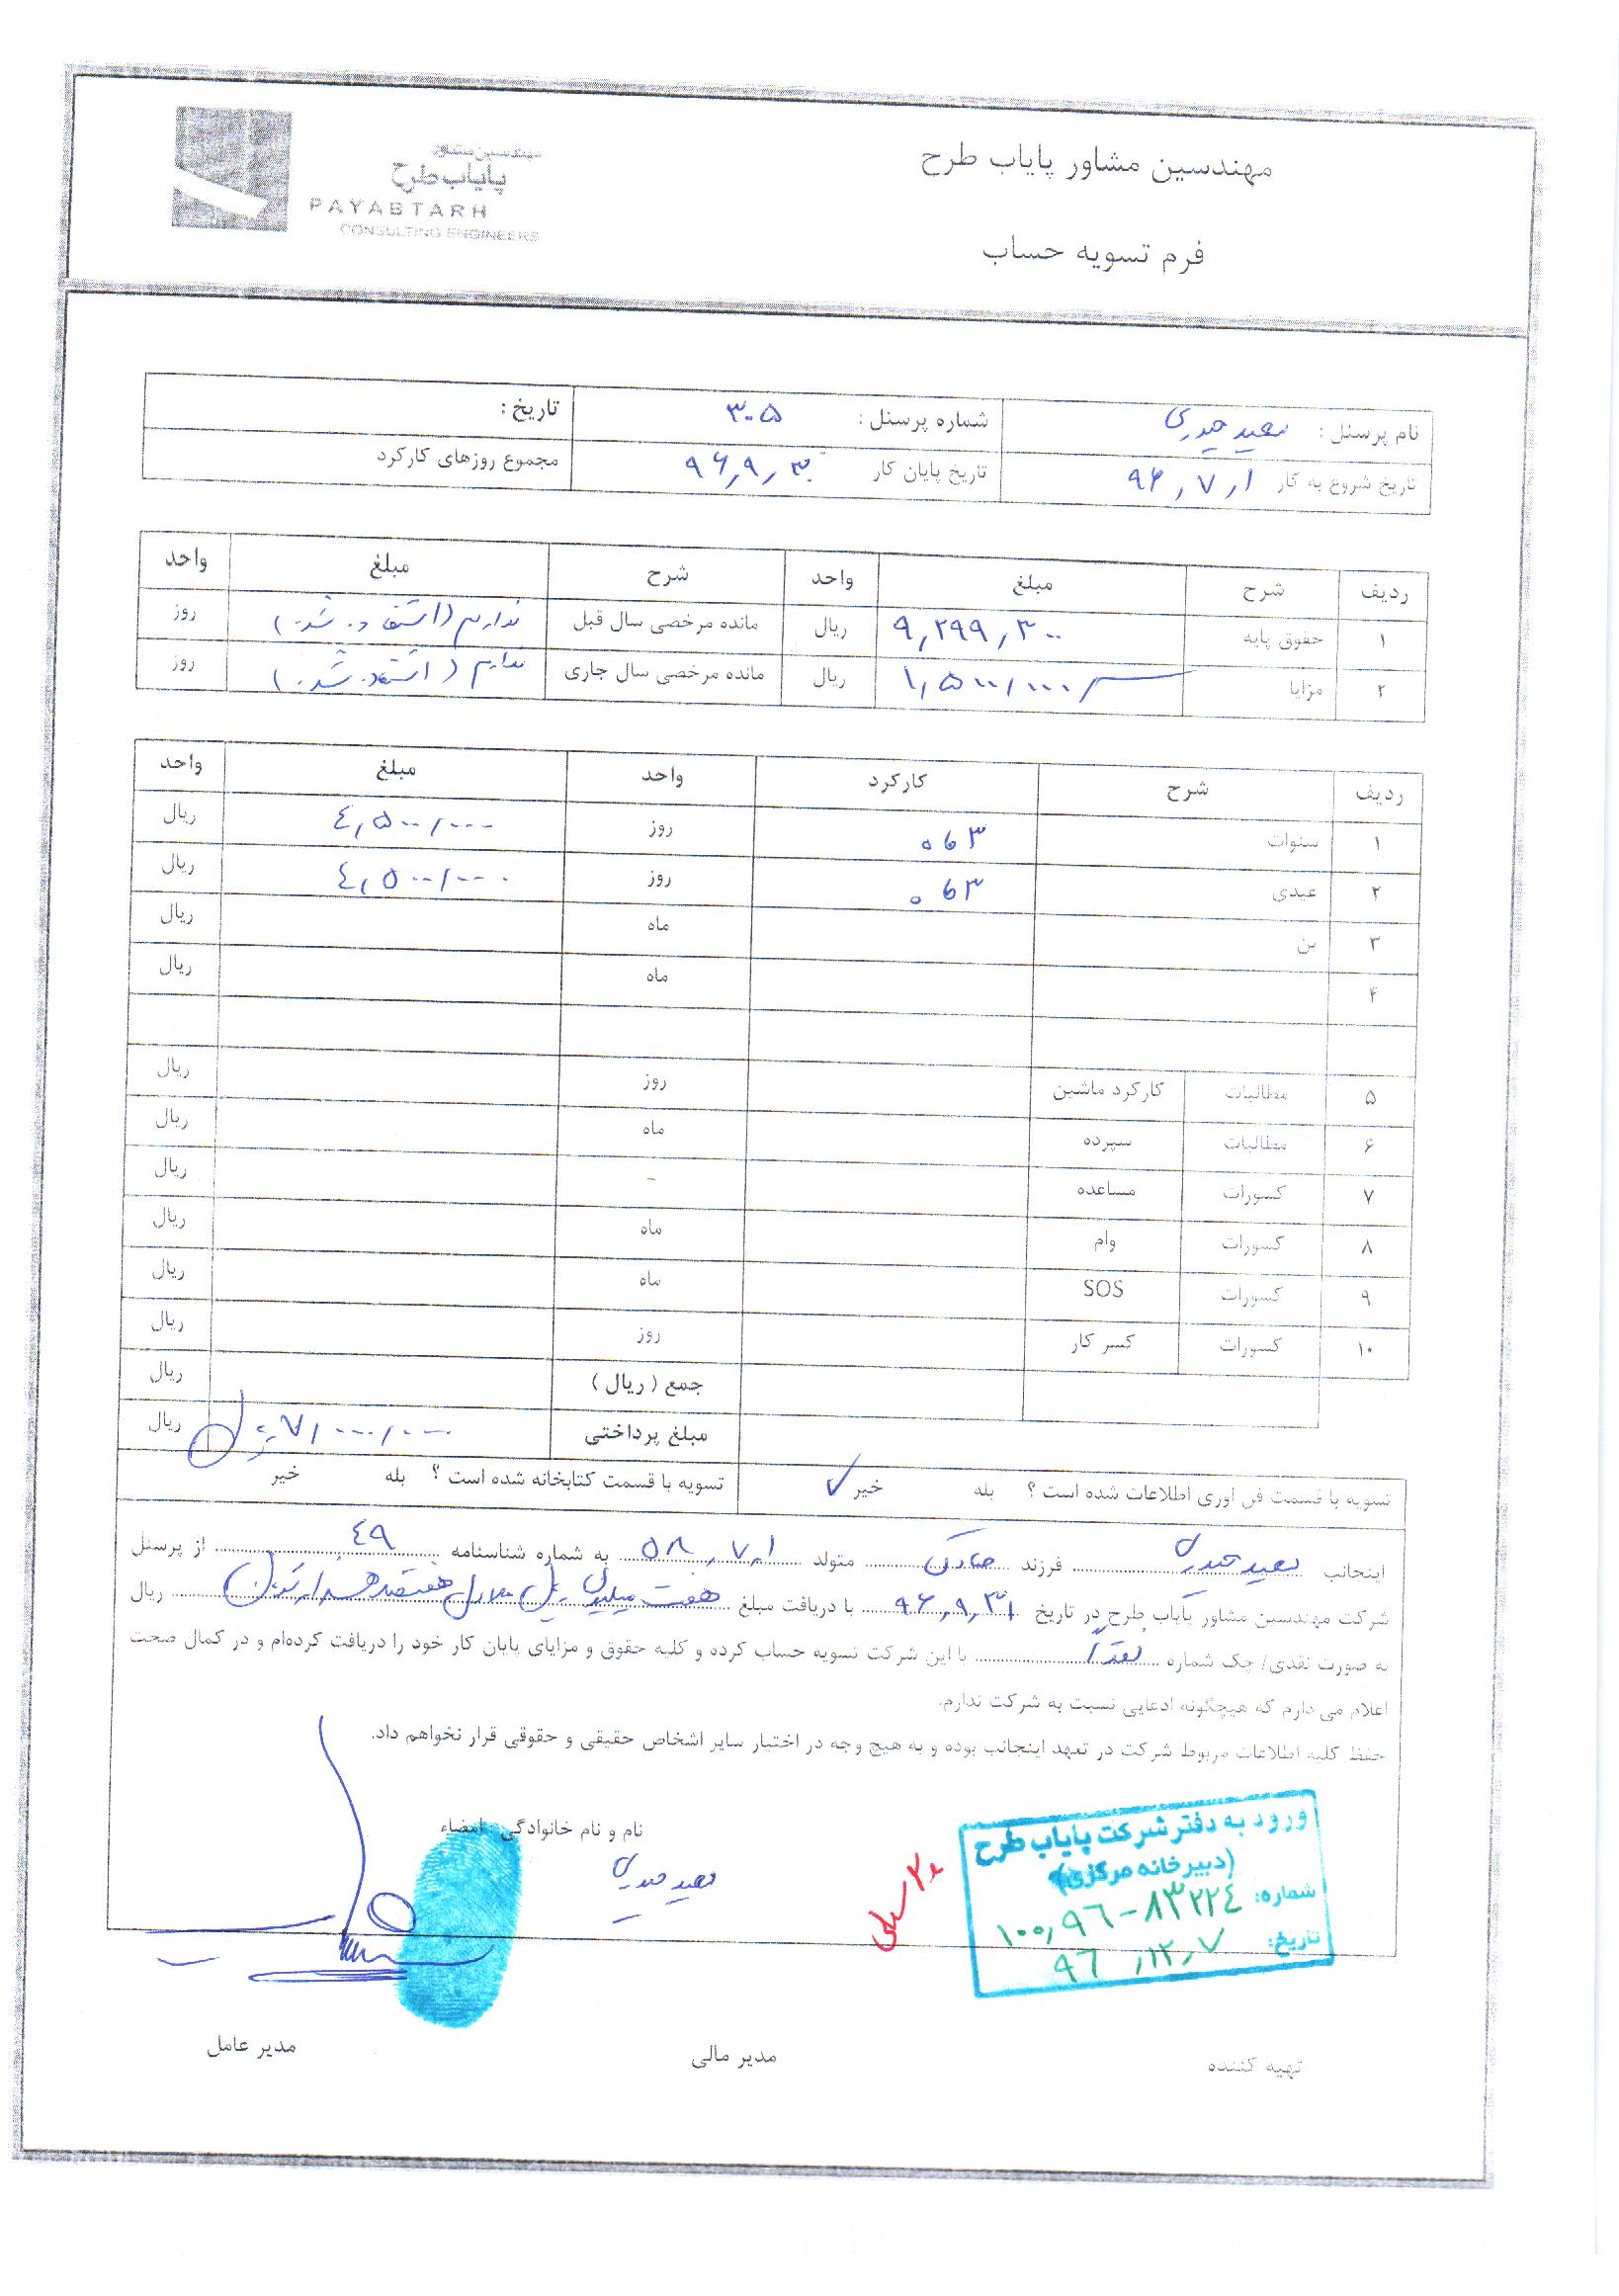 مهندسین مشاور پایاب طرح
مهندسین مشاور
پایاب طرح
PAYABTARH
CONSULTING ENGINEERS
فرم تسویه حساب
نام پرسنل : سعید حیدری شماره پرسنل : ۳۰۵ تاریخ :
تاریخ شروع به کار ۹۶,۷,۱ تاریخ پایان کار ۹۶,۹,۳۰ مجموع روزهای کارکرد
ردیف شرح مبلغ واحد شرح مبلغ واحد
۱ حقوق پایه ۹,۲۹۹,۳۰۰ ریال مانده مرخصی سال قبل ندارم (استفاده شد) روز
۲ مزایا ۱,۵۰۰/۰۰۰ ریال مانده مرخصی سال جاری ندارم (استفاده شد) روز
ردیف شرح کارکرد واحد مبلغ واحد
۱ سنوات ۶۳ روز ٤,۵۰۰/۰۰۰ ریال
۲ عیدی ۶۳ روز ٤,۵۰۰/۰۰۰ ریال
۳ بن ماه ریال
۴ ماه ریال
۵ مطالبات کارکرد ماشین روز ریال
۶ مطالبات سپرده ماه ریال
۷ کسورات مساعده - ریال
۸ کسورات وام ماه ریال
۹ کسورات SOS ماه ریال
۱۰ کسورات کسر کار روز ریال
جمع ( ریال ) ریال
مبلغ پرداختی ۷/۰۰۰/۰۰۰ ریال
تسویه با قسمت فن اوری اطلاعات شده است ؟ بله خیر ✓ تسویه با قسمت کتابخانه شده است ؟ بله خیر
اینجانب سعید حیدری فرزند متولد ۵۸,۷,۱ به شماره شناسنامه ٤۹ از پرسنل
شرکت مهندسین مشاور پایاب طرح در تاریخ ۹۶,۹,۳۰ با دریافت مبلغ هفت میلیون ریال معادل هفتصد هزار تومان ریال
به صورت نقدی/ چک شماره نقداً با این شرکت تسویه حساب کرده و کلیه حقوق و مزایای پایان کار خود را دریافت کرده‌ام و در کمال صحت
اعلام می دارم که هیچگونه ادعایی نسبت به شرکت ندارم.
حفظ کلیه اطلاعات مربوط شرکت در تعهد اینجانب بوده و به هیچ وجه در اختیار سایر اشخاص حقیقی و حقوقی قرار نخواهم داد.
نام و نام خانوادگی : امضاء
سعید حیدری
ورود به دفتر شرکت پایاب طرح
(دبیرخانه مرکزی)
شماره: ۱۰۰,۹۶-۸۳۲۲٤
تاریخ: ۹۶,۱۲,۷
تهیه کننده مدیر مالی مدیر عامل